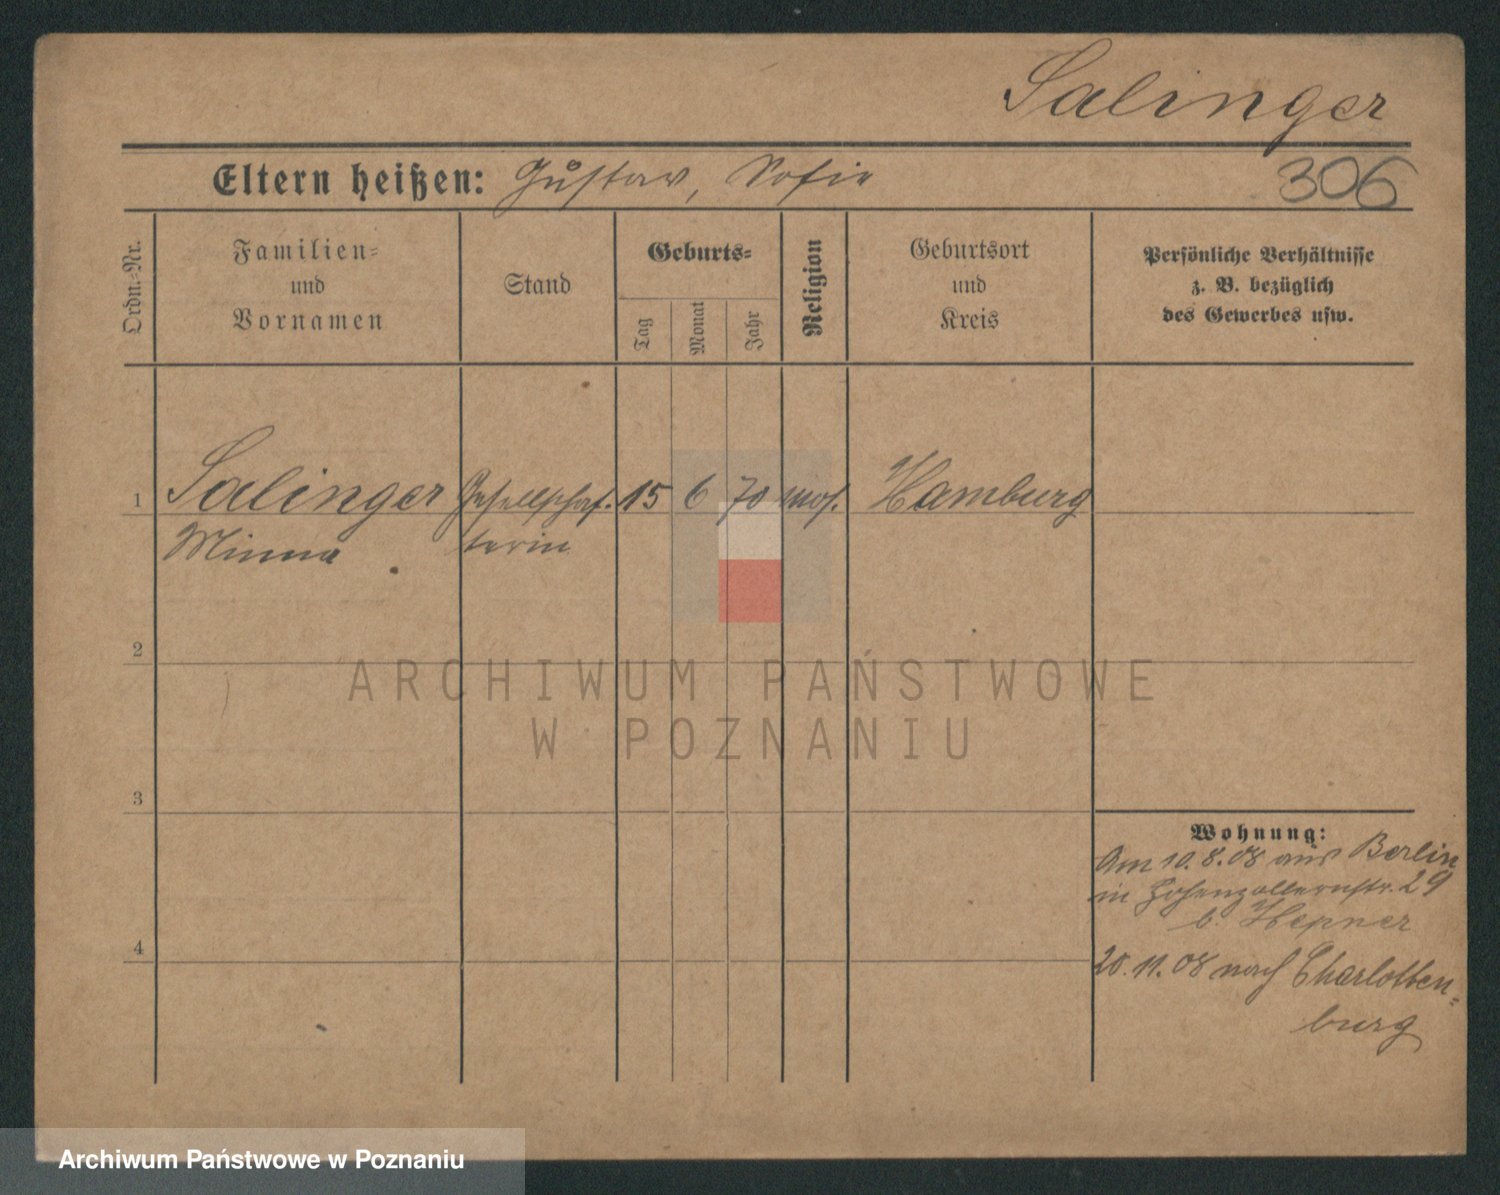 Salinger
Eltern heißen: Gustav, Sofie
306
Ordn.-Nr.
Familien-
und
Vornamen
Stand
Geburts-
Tag
Monat
Jahr
Religion
Geburtsort
und
Kreis
Persönliche Verhältnisse
z. B. bezüglich
des Gewerbes usw.
1 Salinger Gesellschaf- 15 6 70 mos. Hamburg
Minna terin
2
ARCHIWUM PAŃSTWOWE
W POZNANIU
3
Wohnung:
Am 10.8.08 aus Berlin
in Hohenzollernstr. 29
b. Hepner
4
20.11.08 nach Charlotten-
burg
Archiwum Państwowe w Poznaniu